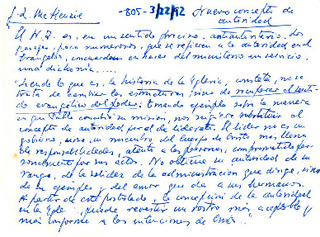 J.L. McKenzie -805- 3/22/92 Nuevo concepto de
autoridad
El N.T. es, en un sentido preciso, antiautoritario. Los
pasajes, poco numerosos, que se refieren a la autoridad en el
Evangelio, insisten en bases del ministerio en servicio,
una diakonía...
Siendo lo que es, la historia de la Iglesia, no se
trata de cambiar las estructuras, sino de
evangélica del poder; tomando ejemplo sobre la manera
en que su misión, nos sustituir al
concepto de autoridad por el de liderato. El líder no es un
sino un miembro del cuerpo de Cristo más lleno
de responsabilidades, atento a las personas, comprometido per-
sonalmente por sus actos. No obtiene su autoridad de su
rango, de la solidez de la administración que dirige, sino
de su ejemplo y del amor que da a sus hermanos.
A partir de este postulado, la concepción de la autoridad
en la Igle. puede revestir un rostro más aceptable y
más conforme a las intenciones de Cristo...